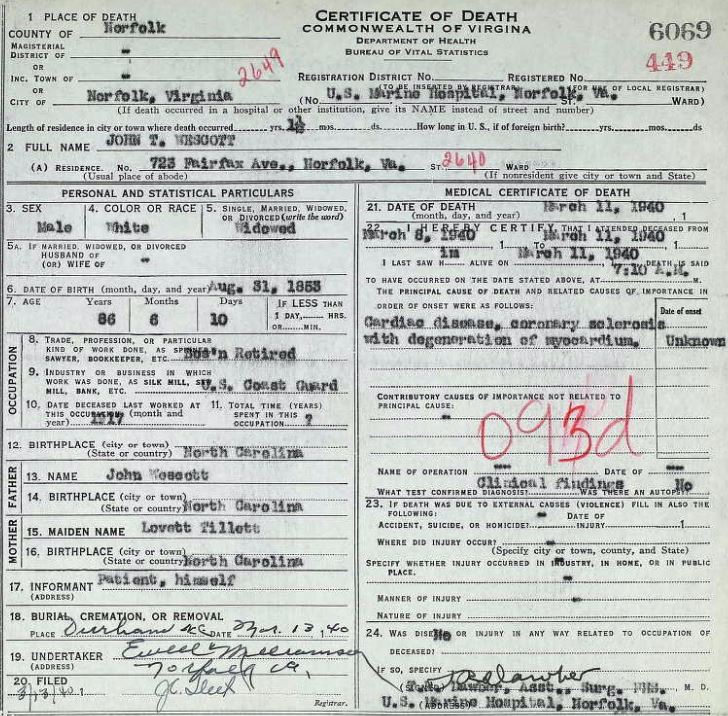 CERTIFICATE OF DEATH
COMMONWEALTH OF VIRGINA
DEPARTMENT OF HEALTH
BUREAU OF VITAL STATISTICS
6069
449
1 PLACE OF DEATH
COUNTY OF Norfolk
MAGISTERIAL
DISTRICT OF -
OR
INC. TOWN OF -
OR
CITY OF Norfolk, Virginia
2649
REGISTRATION DISTRICT NO. REGISTERED NO.
(TO BE INSERTED BY REGISTRAR) (FOR USE OF LOCAL REGISTRAR)
(No. U.S. Marine Hospital, Norfolk, Va. ST. WARD)
(If death occurred in a hospital or other institution, give its NAME instead of street and number)
Length of residence in city or town where death occurred yrs. mos. ds. How long in U. S., if of foreign birth? yrs. mos. ds
2 FULL NAME JOHN T. WESCOTT
(A) RESIDENCE. No. 723 Fairfax Ave., Norfolk, Va. ST. 2640 WARD
(Usual place of abode) (If nonresident give city or town and State)
PERSONAL AND STATISTICAL PARTICULARS
3. SEX
Male
4. COLOR OR RACE
White
5. SINGLE, MARRIED, WIDOWED,
OR DIVORCED (write the word)
Widowed
5A. IF MARRIED, WIDOWED, OR DIVORCED
HUSBAND OF
(OR) WIFE OF -
6. DATE OF BIRTH (month, day, and year) Aug. 31, 1853
7. AGE Years Months Days IF LESS THAN
1 DAY, HRS.
OR MIN.
86 6 10
OCCUPATION
8. TRADE, PROFESSION, OR PARTICULAR
KIND OF WORK DONE, AS
SAWYER, BOOKKEEPER, ETC. Bos'n Retired
9. INDUSTRY OR BUSINESS IN WHICH
WORK WAS DONE, AS SILK MILL,
MILL, BANK, ETC. U.S. Coast Guard
10. DATE DECEASED LAST WORKED AT
THIS OCCUPATION (month and
year) 1917
11. TOTAL TIME (YEARS)
SPENT IN THIS
OCCUPATION ?
12. BIRTHPLACE (city or town)
(State or country) North Carolina
FATHER
13. NAME John Wescott
14. BIRTHPLACE (city or town)
(State or country) North Carolina
MOTHER
15. MAIDEN NAME Lovett Tillett
16. BIRTHPLACE (city or town)
(State or country) North Carolina
17. INFORMANT Patient, himself
(ADDRESS)
18. BURIAL, CREMATION, OR REMOVAL
PLACE Durham NC DATE Mar. 13, 40
19. UNDERTAKER
(ADDRESS) Norfolk Va.
20. FILED
3/13/40 1
Registrar.
MEDICAL CERTIFICATE OF DEATH
21. DATE OF DEATH March 11, 1940
(month, day, and year) , 1
22. I HEREBY CERTIFY, THAT I ATTENDED DECEASED FROM
March 8, 1940 , 1 TO March 11, 1940 , 1
I LAST SAW H im ALIVE ON March 11, 1940 DEATH IS SAID
TO HAVE OCCURRED ON THE DATE STATED ABOVE, AT 7:10 A.M. M.
THE PRINCIPAL CAUSE OF DEATH AND RELATED CAUSES OF IMPORTANCE IN
ORDER OF ONSET WERE AS FOLLOWS:
Date of onset
Cardiac disease, coronary sclerosis
with degeneration of myocardium. Unknown
CONTRIBUTORY CAUSES OF IMPORTANCE NOT RELATED TO
PRINCIPAL CAUSE:
-
093d
NAME OF OPERATION DATE OF
WHAT TEST CONFIRMED DIAGNOSIS? Clinical findings WAS THERE AN AUTOPSY? No
23. IF DEATH WAS DUE TO EXTERNAL CAUSES (VIOLENCE) FILL IN ALSO THE
FOLLOWING: - DATE OF
ACCIDENT, SUICIDE, OR HOMICIDE? INJURY 1
WHERE DID INJURY OCCUR? -
(Specify city or town, county, and State)
SPECIFY WHETHER INJURY OCCURRED IN INDUSTRY, IN HOME, OR IN PUBLIC
PLACE. -
MANNER OF INJURY -
NATURE OF INJURY
24. WAS DISEASE OR INJURY IN ANY WAY RELATED TO OCCUPATION OF
DECEASED? No
IF SO, SPECIFY
Dawber, Asst. Surg. M. D.
(ADDRESS) U.S. Marine Hospital, Norfolk, Va.